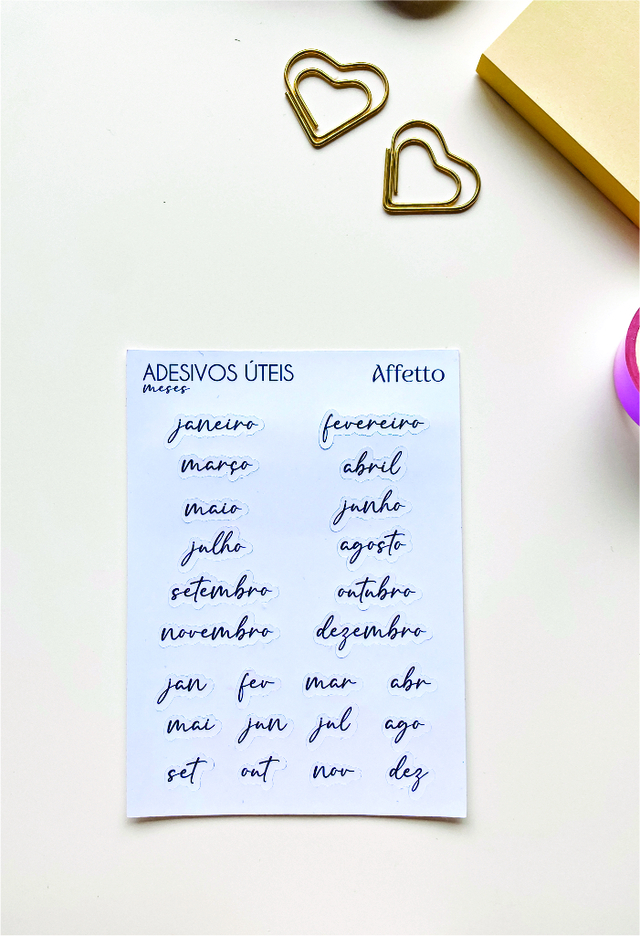 ADESIVOS ÚTEIS Affetto
meses
janeiro fevereiro
março abril
maio junho
julho agosto
setembro outubro
novembro dezembro
jan fev mar abr
mai jun jul ago
set out nov dez